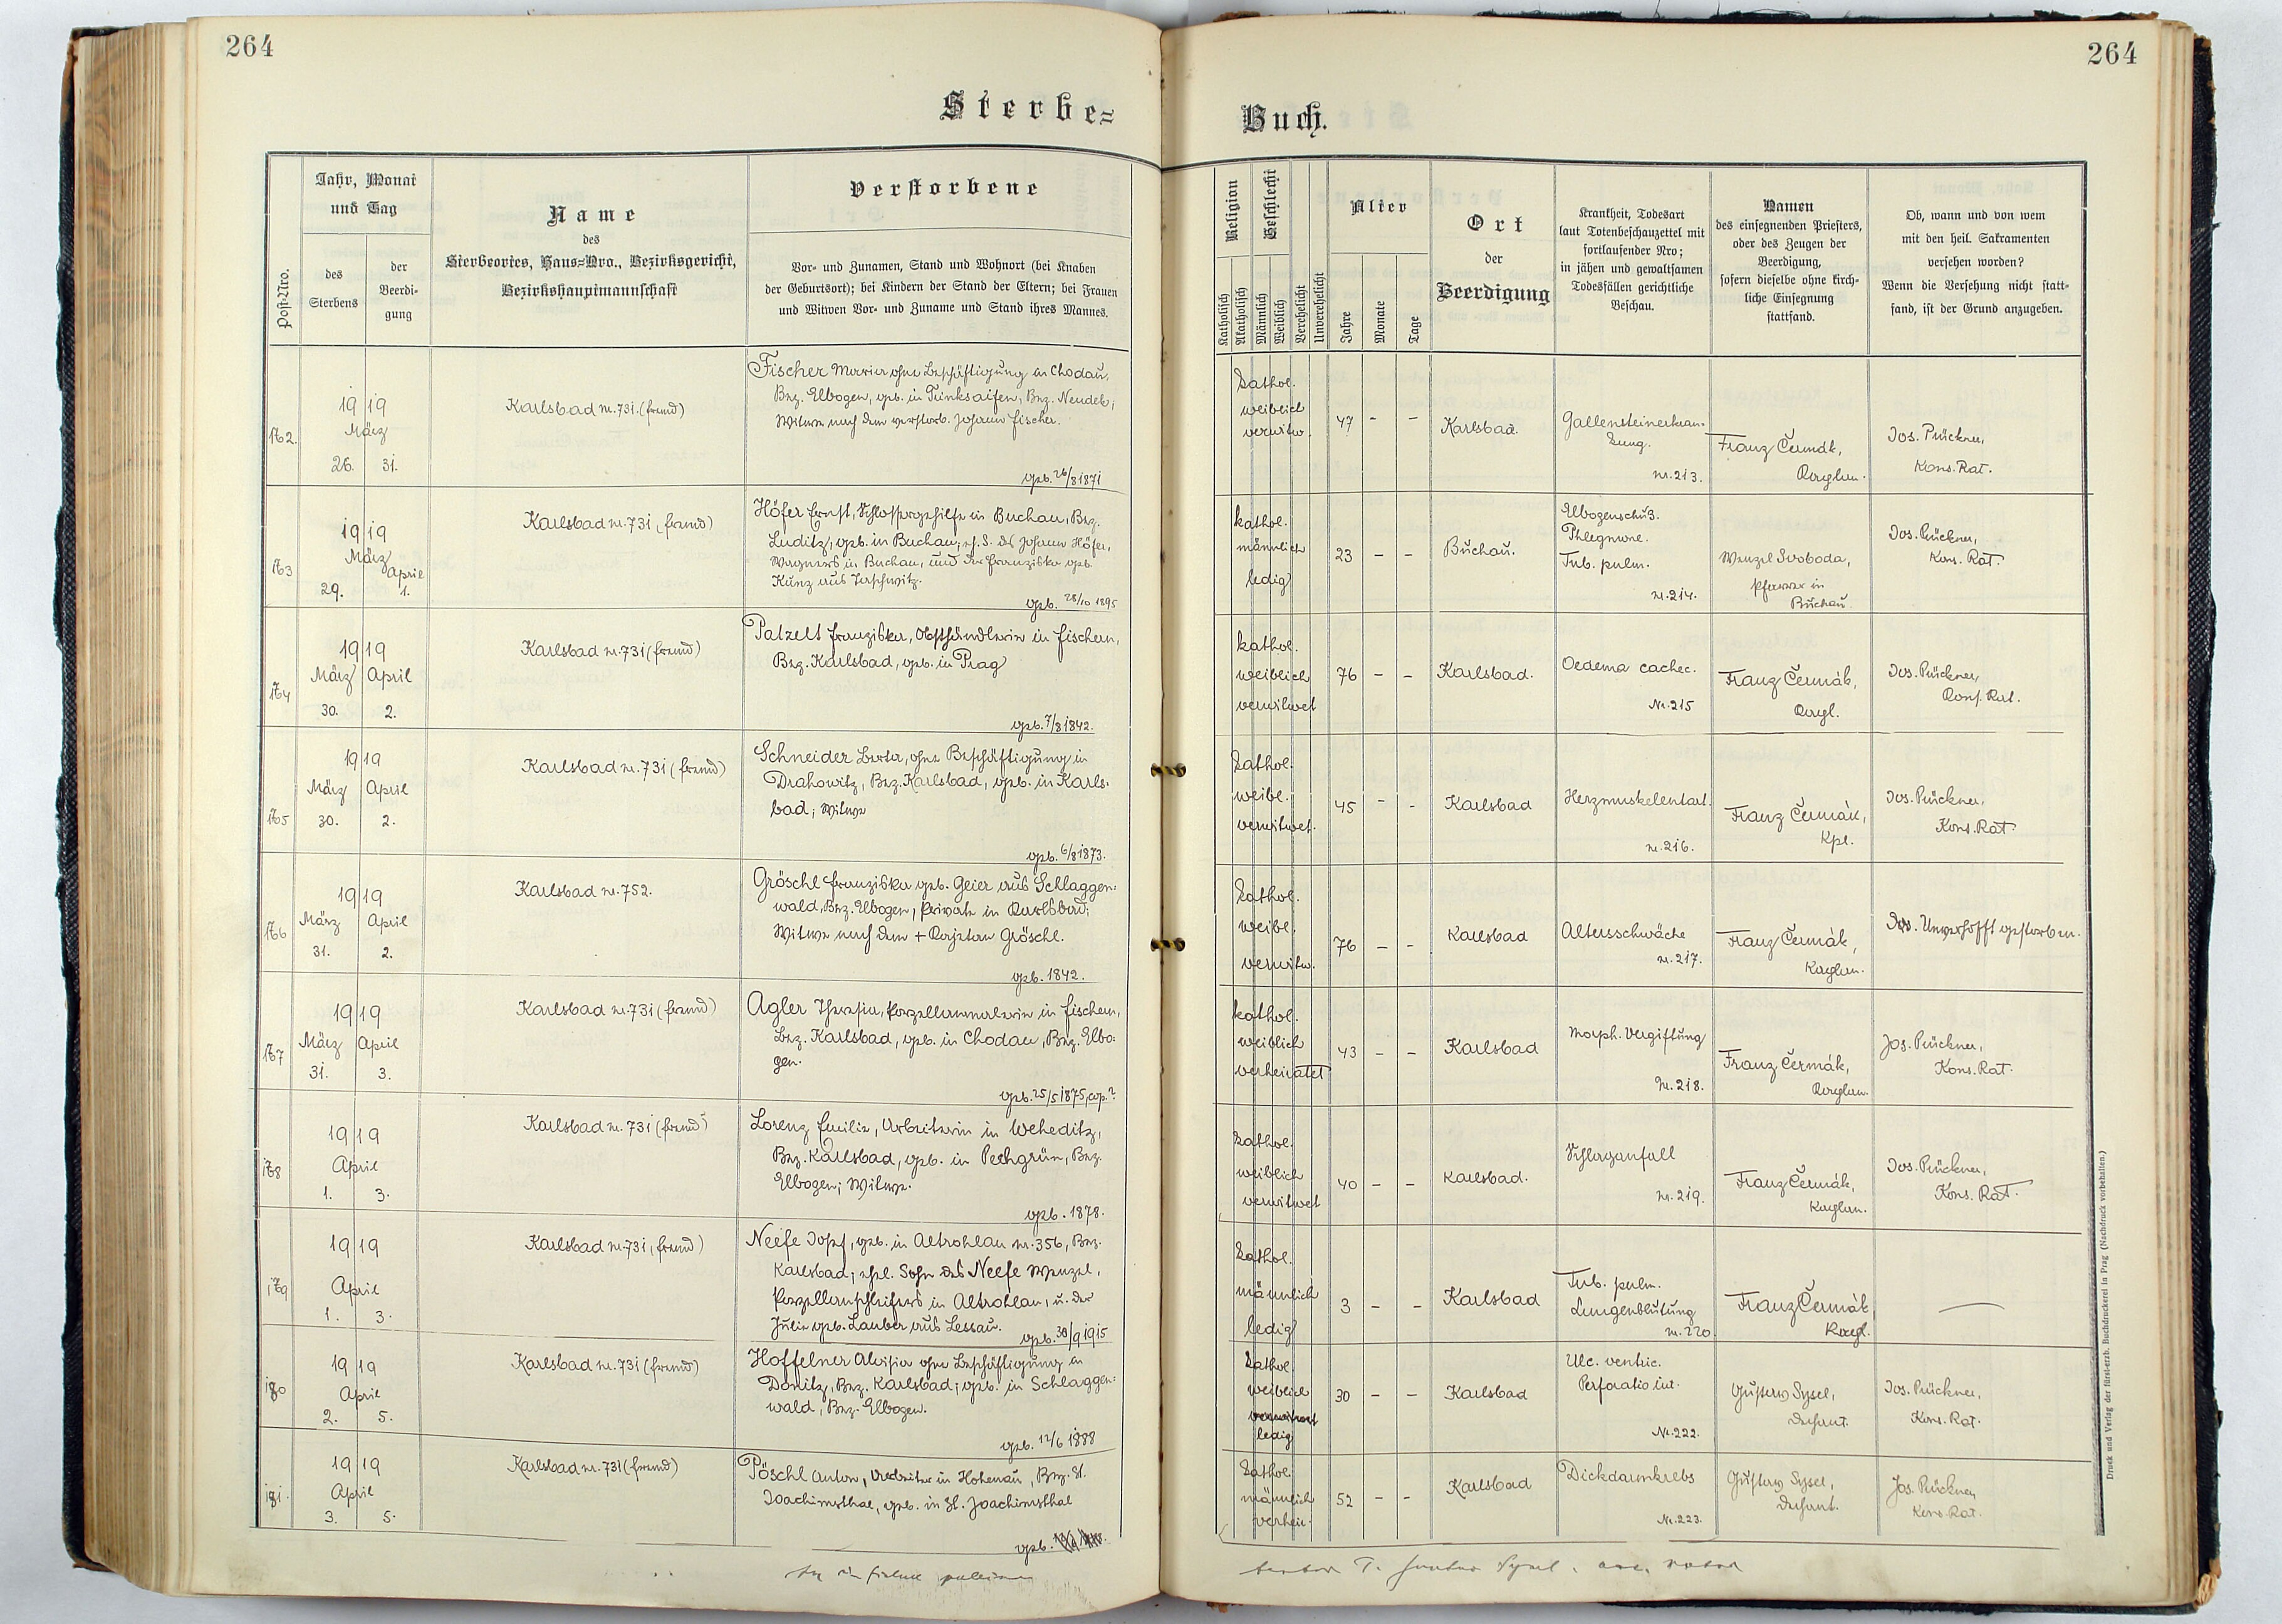 264
264
Sterbe=
Buch.
Post-Nro.
Jahr, Monat
und Tag
des
Sterbens
der
Beerdi-
gung
Name
des
Sterbeortes, Haus=Nro., Bezirksgericht,
Bezirkshauptmannschaft
Verstorbene
Vor- und Zunamen, Stand und Wohnort (bei Knaben
der Geburtsort); bei Kindern der Stand der Eltern; bei Frauen
und Witwen Vor- und Zuname und Stand ihres Mannes.
Religion
Katholisch
Akatholisch
Geschlecht
Männlich
Weiblich
Verehelicht
Unverehelicht
Alter
Jahre
Monate
Tage
Ort
der
Beerdigung
Krankheit, Todesart
laut Totenbeschauzettel mit
fortlaufender Nro;
in jähen und gewaltsamen
Todesfällen gerichtliche
Beschau.
Namen
des einsegnenden Priesters,
oder des Zeugen der
Beerdigung,
sofern dieselbe ohne kirch-
liche Einsegnung
stattfand.
Ob, wann und von wem
mit den heil. Sakramenten
versehen worden?
Wenn die Versehung nicht statt-
fand, ist der Grund anzugeben.
172.
1919
März
26. 31.
Karlsbad nr. 731. (fremd)
Fischer Maria ohne Beschäftigung in Chodau,
Bez. Elbogen, geb. in Trinksaifen, Bez. Neudek,
Witwe nach dem verstorb. Johann Fischer.
geb. 26/8 1871
kathol.
weiblich
verwitw.
47 - -
Karlsbad.
Gallensteinerkran-
kung.
nr. 213.
Franz Čermák,
Kaplan.
Jos. Prückner,
Kons. Rat.
173
1919
März
April
29. 1.
Karlsbad nr. 731 (fremd)
Höfer Ernst, Schlossergehilfe in Buchau, Bez.
Luditz, geb. in Buchau, e. S. des Johann Höfer,
Wagners in Buchau, und der Franziska geb.
Kunz aus
geb. 28/10 1895
kathol.
männlich
ledig
23 - -
Buchau.
Elbogenschuß.
Phlegmone.
Tub. pulm.
nr. 214.
Wenzel Svoboda,
Pfarrer in
Buchau.
Jos. Prückner,
Kons. Rat.
174
1919
März April
30. 2.
Karlsbad nr. 731 (fremd)
Patzelt Franziska, Obsthändlerin in Fischern,
Bez. Karlsbad, geb. in Prag
geb. 7/8 1842.
kathol.
weiblich
verwitwet
76 - -
Karlsbad.
Oedema cachec.
Nr. 215
Franz Čermák,
Kapl.
Jos. Prückner,
Kons. Rat.
175
1919
März April
30. 2.
Karlsbad nr. 731 (fremd)
Schneider Berta, ohne Beschäftigung in
Drahowitz, Bez. Karlsbad, geb. in Karls-
bad; Witwe
geb. 6/8 1873.
kathol.
weibl.
verwitwet.
45 - -
Karlsbad
Herzmuskelentart.
nr. 216.
Franz Čermák,
Kpl.
Jos. Prückner,
Kons. Rat.
176
1919
März April
31. 2.
Karlsbad nr. 752.
Gröschl Franziska geb. Geier aus Schlaggen-
wald, Bez. Elbogen, Private in Karlsbad;
Witwe nach dem + Kajetan Gröschl.
geb. 1842.
kathol.
weibl.
verwitw.
76 - -
Karlsbad
Altersschwäche
nr. 217.
Franz Čermák,
Kaplan.
Unverhofft gestorben.
177
1919
März April
31. 3.
Karlsbad nr. 731 (fremd)
Agler Theresia, Porzellanmalerin in Fischern,
Bez. Karlsbad, geb. in Chodau, Bez. Elbo-
gen.
geb. 25/5 1875, cop. ?
kathol.
weiblich
verheiratet
43 - -
Karlsbad
Morph. Vergiftung
Nr. 218.
Franz Čermák,
Kaplan.
Jos. Prückner,
Kons. Rat.
178
1919
April
1. 3.
Karlsbad nr. 731 (fremd)
Lorenz Emilie, Arbeiterin in Weheditz,
Bez. Karlsbad, geb. in Pechgrün, Bez.
Elbogen; Witwe.
geb. 1878.
kathol.
weiblich
verwitwet
40 - -
Karlsbad.
Schlaganfall
nr. 219.
Franz Čermák,
Kaplan.
Jos. Prückner,
Kons. Rat.
179
1919
April
1. 3.
Karlsbad nr. 731 (fremd)
Neefe Josef, geb. in Altrohlau nr. 356, Bez.
Karlsbad; ehel. Sohn des Neefe Wenzel,
Porzellanschleifers in Altrohlau, u. der
Julie geb. Lauber aus Lessau.
geb. 30/9 1915
kathol.
männlich
ledig
3 - -
Karlsbad
Tub. pulm.
Lungenblutung
nr. 220
Franz Čermák
Kapl.
180
1919
April
2. 5.
Karlsbad nr. 731 (fremd)
Hoffelner Aloisia ohne Beschäftigung in
Donitz, Bez. Karlsbad; geb. in Schlaggen-
wald, Bez. Elbogen.
geb. 12/6 1888
kathol.
weiblich
verwitwet
ledig
30 - -
Karlsbad
Ulc. ventric.
Perforatio int.
Nr. 222.
Gustav Sysel,
Dechant.
Jos. Prückner,
Kons. Rat.
181.
1919
April
3. 5.
Karlsbad nr. 731 (fremd)
Pöschl Anton, Arbeiter in Hohenau, Bez. St.
Joachimsthal, geb. in St. Joachimsthal
geb.
kathol.
männlich
verheir.
52 - -
Karlsbad
Dickdarmkrebs
Nr. 223.
Gustav Sysel,
Dechant.
Jos. Prückner,
Kons. Rat.
Druck und Verlag der fürst-erzb. Buchdruckerei in Prag (Nachdruck vorbehalten.)